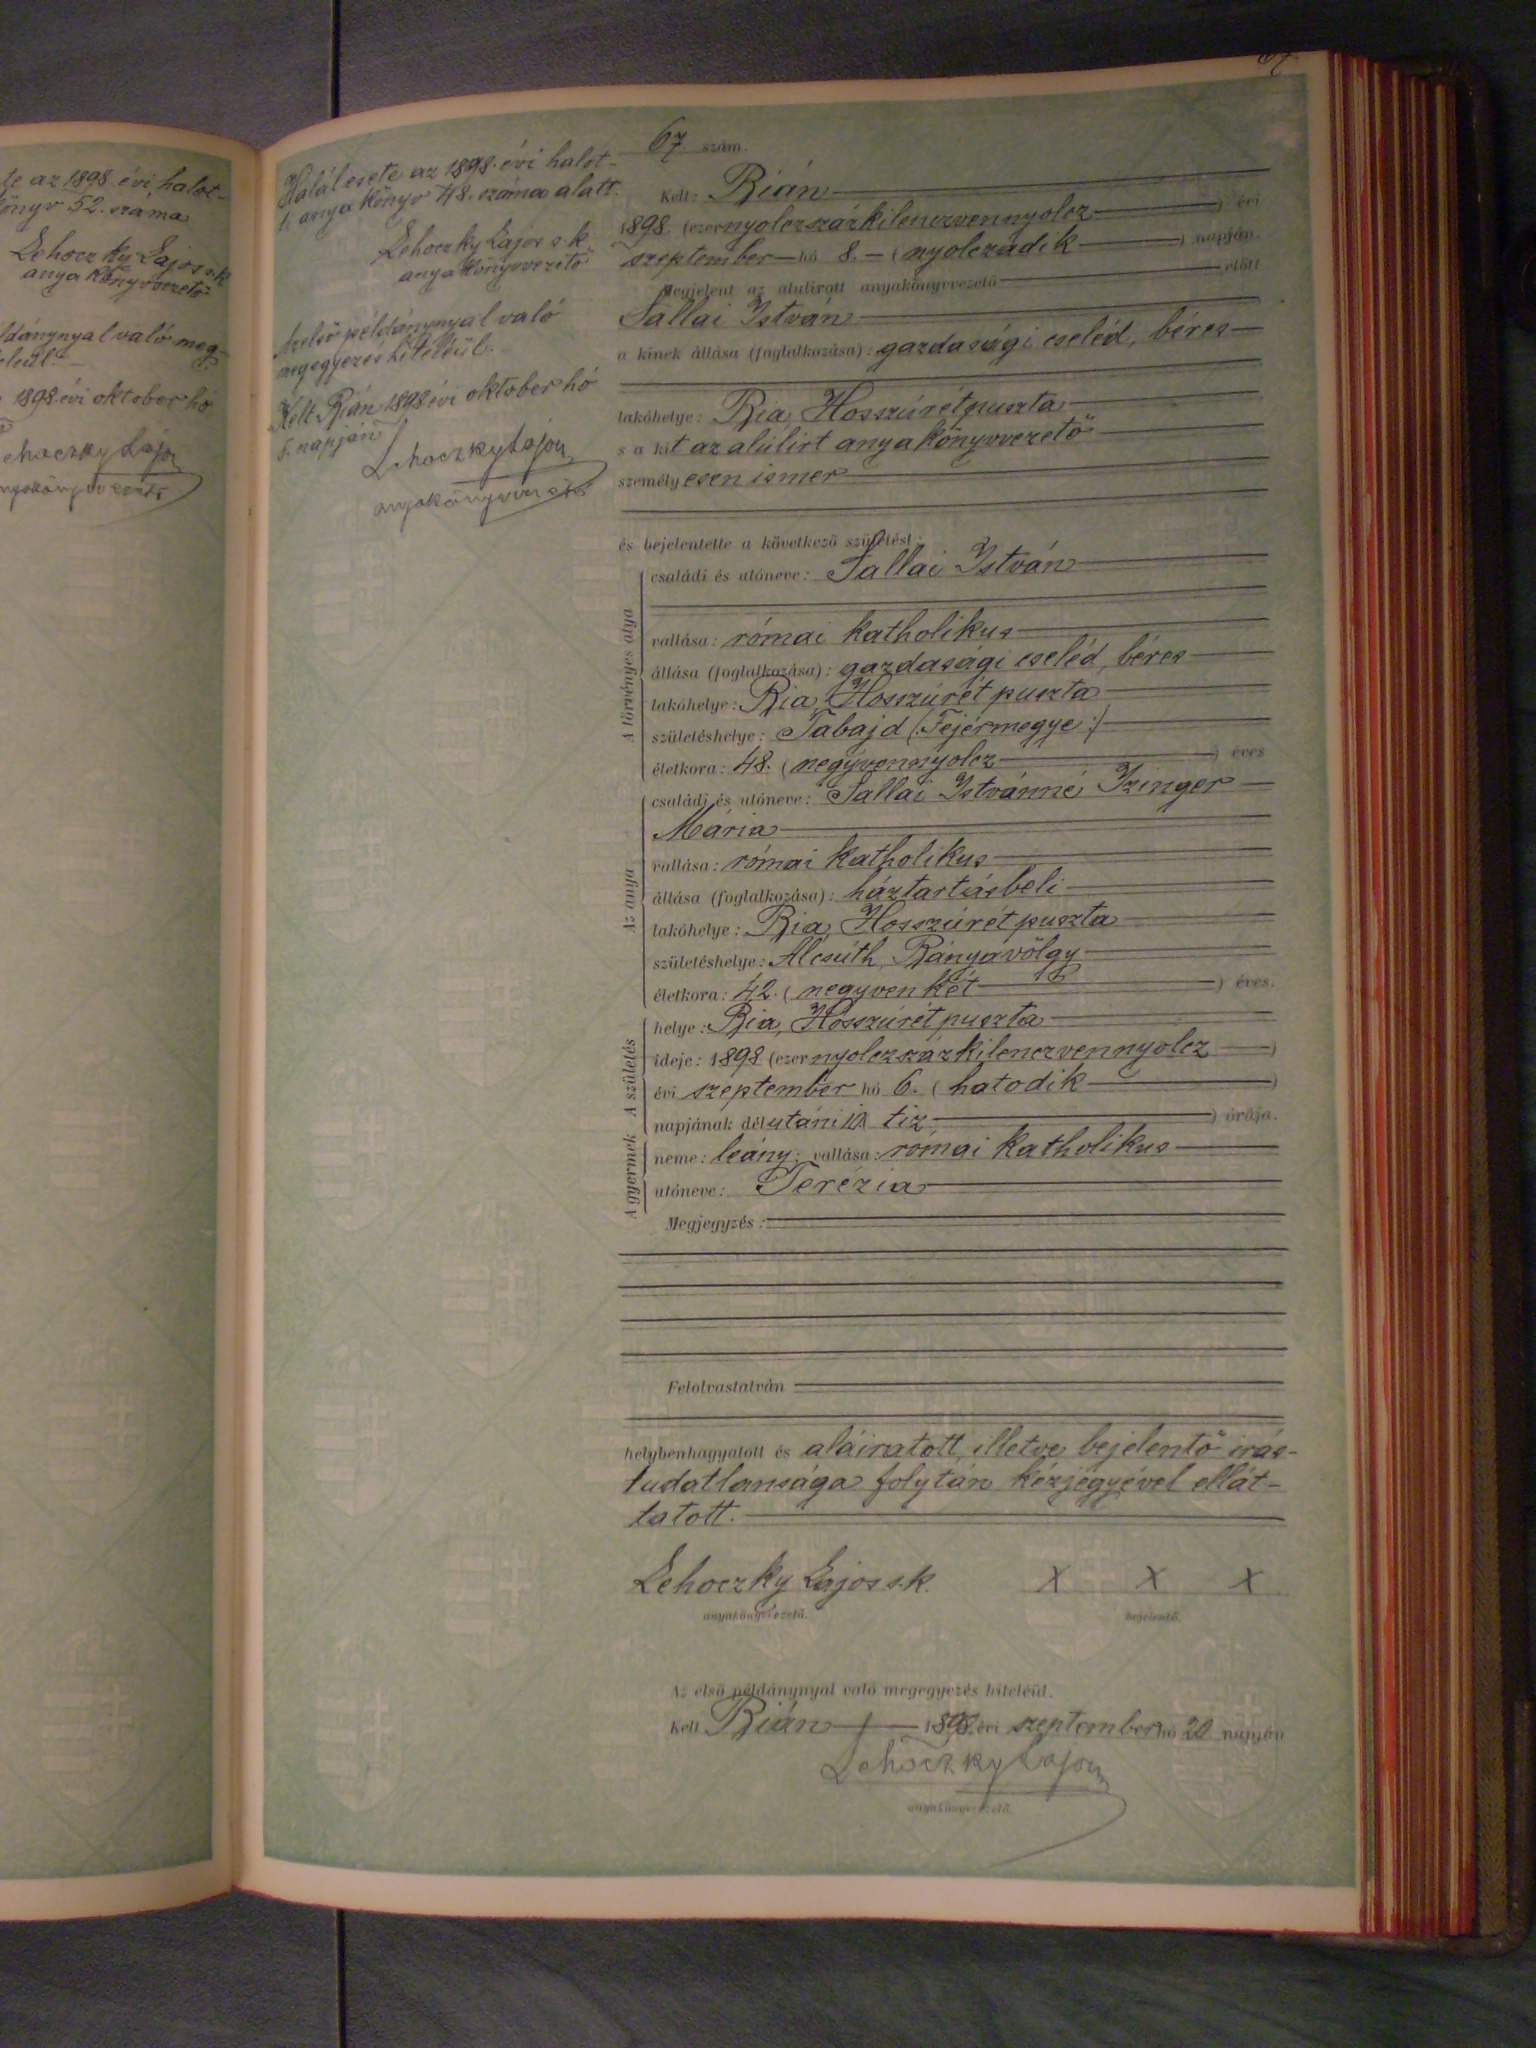 te az 1898. évi halot-
könyv 52. száma
Lehoczky Lajos s.k.
anyakönyvvezető
ldánynyal való meg-
1898. évi oktober hó
Lehoczky Lajos
anyakönyvvezető
Halálesete az 1898. évi halot-
ti anyakönyv 48. száma alatt.
Lehoczky Lajos s.k.
anyakönyvvezető
Az első példánynyal való
megegyezés hiteléül.
Kelt Bián 1898 évi oktober hó
5. napján
Lehoczky Lajos
anyakönyvvezető
67
67 szám.
Kelt: Bián
1898. (ezernyolczszázkilenczvennyolcz) évi
szeptember hó 8. (nyolczadik) napján.
Megjelent az alulirott anyakönyvvezető előtt
Sallai István
a kinek állása (foglalkozása): gazdasági cseléd, béres
lakóhelye: Bia, Hosszúrét puszta
s a kit az alúlirt anyakönyvvezető
személyesen ismer
és bejelentette a következő születést:
A törvényes atya
családi és utóneve: Sallai István
vallása: római katholikus
állása (foglalkozása): gazdasági cseléd, béres
lakóhelye: Bia, Hosszúrét puszta
születéshelye: Tabajd (:Fejérmegye:)
életkora: 48. (negyvennyolcz) éves
Az anya
családi és utóneve: Sallai Istvánné, Izinger
Mária
vallása: római katholikus
állása (foglalkozása): háztartásbeli
lakóhelye: Bia, Hosszúrét puszta
születéshelye: Alcsúth, Bányavölgy
életkora: 42. (negyven két) éves.
A születés
helye: Bia, Hosszúrét puszta
ideje: 1898 (ezernyolczszázkilenczvennyolcz)
évi szeptember hó 6. (hatodik)
napjának délutáni 10 tiz) órája.
A gyermek
neme: leány; vallása: római katholikus
utóneve: Terézia
Megjegyzés:
Felolvastatván
helybenhagyatott és aláiratott, illetve bejelentő irás-
tudatlansága folytán kézjegyével ellát-
tatott.
Lehoczky Lajos s.k. X X X
anyakönyvvezető. bejelentő.
Az első példánynyal való megegyezés hiteléül.
Kelt Bián 1898. évi szeptember hó 20 napján
Lehoczky Lajos
anyakönyvvezető.